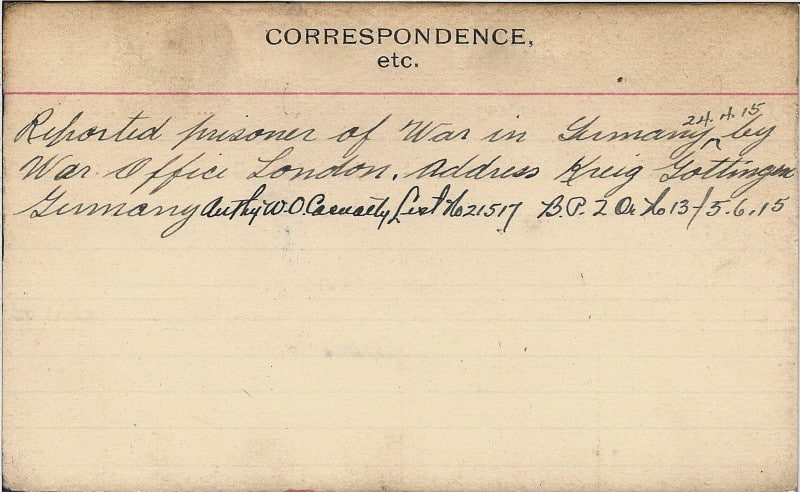 CORRESPONDENCE,
etc.
24.4.15
Reported prisoner of War in Germany ^ by
War Office London. Address Kreig Gottingen
Germany Authy W.O. Casualty List No 21517 B.P. 2 Or No 13-/5.6.15